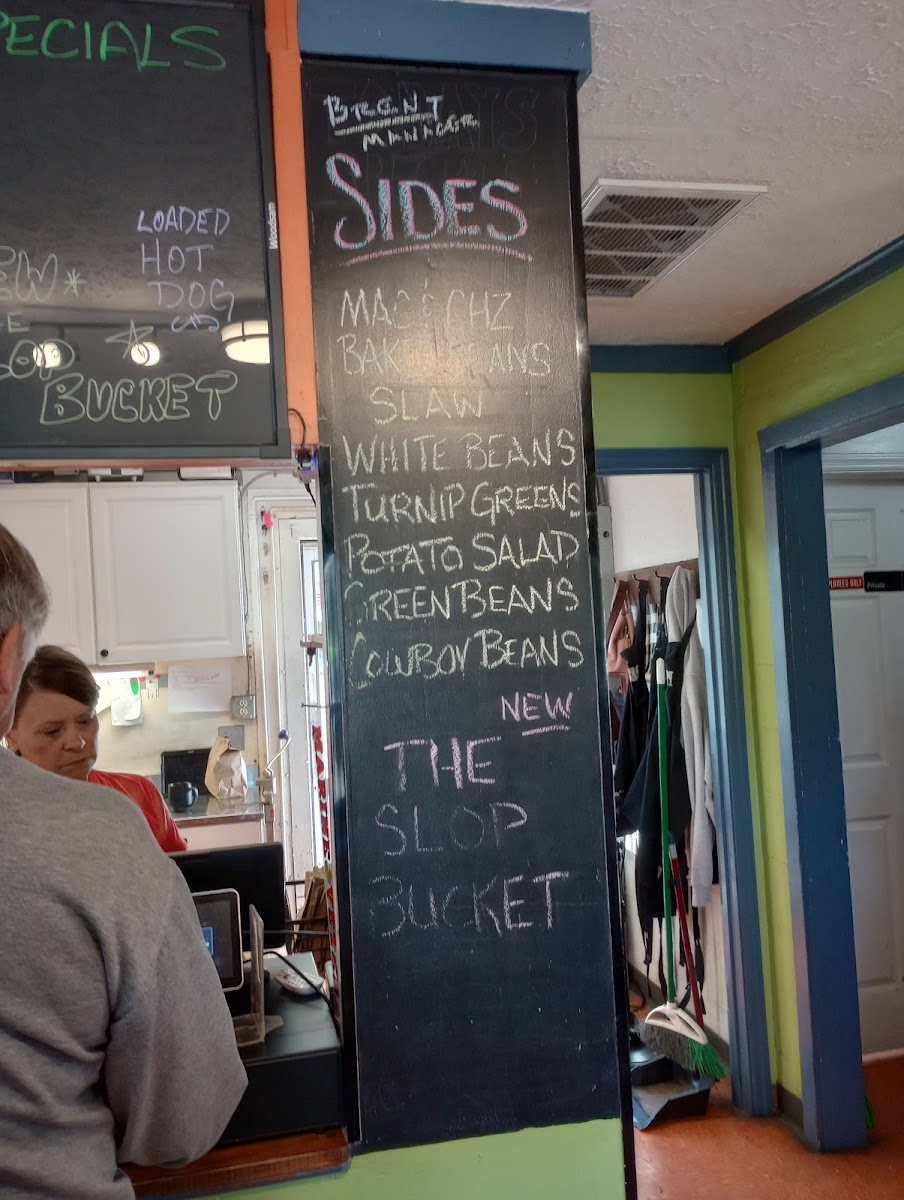 PECIALS
LOADED
HOT
DOG
EW*
BUCKET
BRENT
MANAGER
SIDES
MAC & CHZ
BAKED BEANS
SLAW
WHITE BEANS
TURNIP GREENS
POTATO SALAD
GREEN BEANS
COWBOY BEANS
NEW
THE
SLOP
BUCKET
PLOYEES ONLY
Private